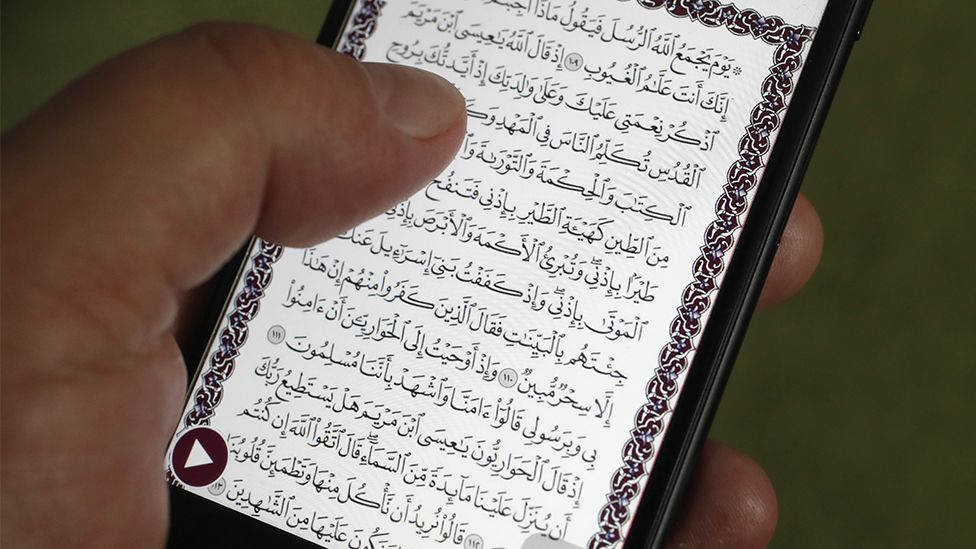 ۞ يَوۡمَ يَجۡمَعُ ٱللَّهُ ٱلرُّسُلَ فَيَقُولُ مَاذَآ أُجِبۡتُمۡ
إِنَّكَ أَنتَ عَلَّٰمُ ٱلۡغُيُوبِ ١٠٩ إِذۡ قَالَ ٱللَّهُ يَٰعِيسَى ٱبۡنَ مَرۡيَمَ
ٱذۡكُرۡ نِعۡمَتِي عَلَيۡكَ وَعَلَىٰ وَٰلِدَتِكَ إِذۡ أَيَّدتُّكَ بِرُوحِ
ٱلۡقُدُسِ تُكَلِّمُ ٱلنَّاسَ فِي ٱلۡمَهۡدِ
ٱلۡكِتَٰبَ وَٱلۡحِكۡمَةَ وَٱلتَّوۡرَىٰةَ
مِنَ ٱلطِّينِ كَهَيۡـَٔةِ ٱلطَّيۡرِ بِإِذۡنِي فَتَنفُخُ
طَيۡرَۢا بِإِذۡنِيۖ وَتُبۡرِئُ ٱلۡأَكۡمَهَ وَٱلۡأَبۡرَصَ بِإِذۡنِي
ٱلۡمَوۡتَىٰ بِإِذۡنِيۖ وَإِذۡ كَفَفۡتُ بَنِيٓ إِسۡرَٰٓءِيلَ عَنكَ
جِئۡتَهُم بِٱلۡبَيِّنَٰتِ فَقَالَ ٱلَّذِينَ كَفَرُواْ مِنۡهُمۡ إِنۡ هَٰذَآ
إِلَّا سِحۡرٞ مُّبِينٞ ١١٠ وَإِذۡ أَوۡحَيۡتُ إِلَى ٱلۡحَوَارِيِّـۧنَ أَنۡ ءَامِنُواْ
بِي وَبِرَسُولِي قَالُوٓاْ ءَامَنَّا وَٱشۡهَدۡ بِأَنَّنَا مُسۡلِمُونَ ١١١
إِذۡ قَالَ ٱلۡحَوَارِيُّونَ يَٰعِيسَى ٱبۡنَ مَرۡيَمَ هَلۡ يَسۡتَطِيعُ رَبُّكَ
أَن يُنَزِّلَ عَلَيۡنَا مَآئِدَةٗ مِّنَ ٱلسَّمَآءِۖ قَالَ ٱتَّقُواْ ٱللَّهَ إِن كُنتُم
١١٢ قَالُواْ نُرِيدُ أَن نَّأۡكُلَ مِنۡهَا وَتَطۡمَئِنَّ قُلُوبُنَا
وَنَكُونَ عَلَيۡهَا مِنَ ٱلشَّٰهِدِينَ ١١٣